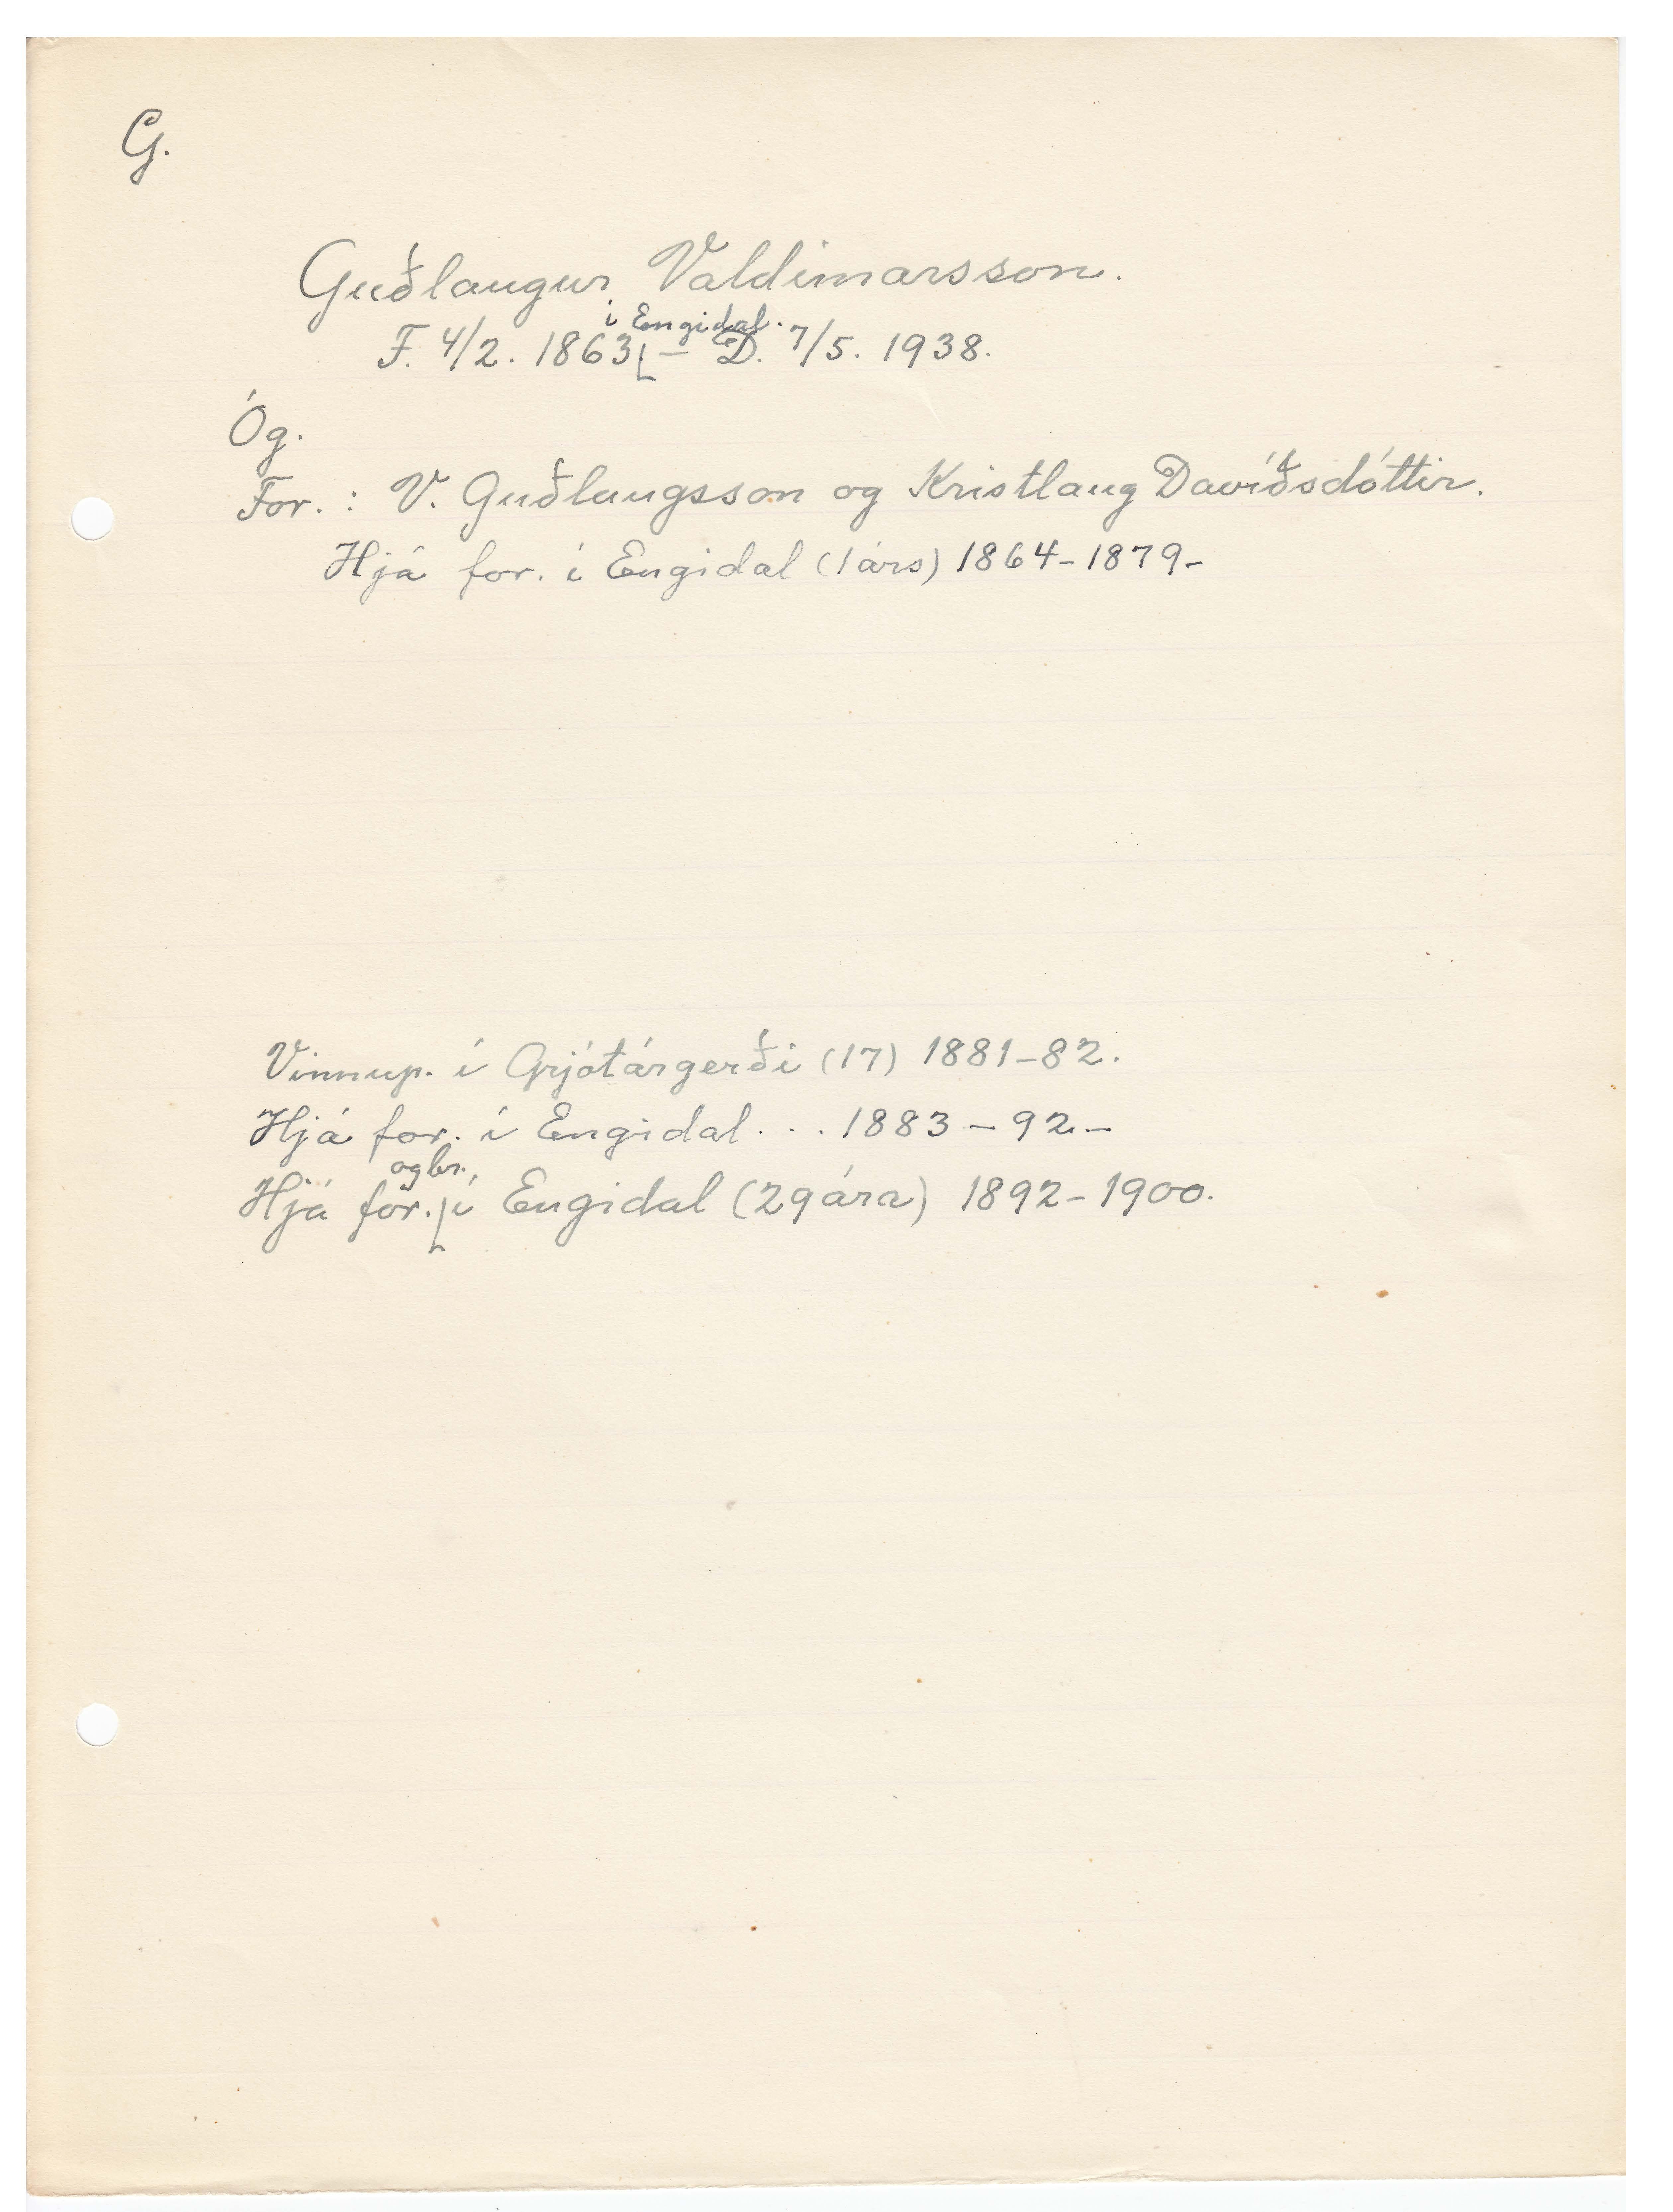 G.
Guðlaugur Valdimarsson.
í Engidal.
F. 4/2. 1863 – D. 7/5. 1938.
Óg.
For. : V. Guðlaugsson og Kristlaug Davíðsdóttir.
Hjá for. í Engidal (1 árs) 1864-1879-
Vinnup. í Grjótárgerði (17) 1881-82.
Hjá for. í Engidal . . . 1883 - 92 -
og br.
Hjá for. í Engidal (29 ára) 1892-1900.